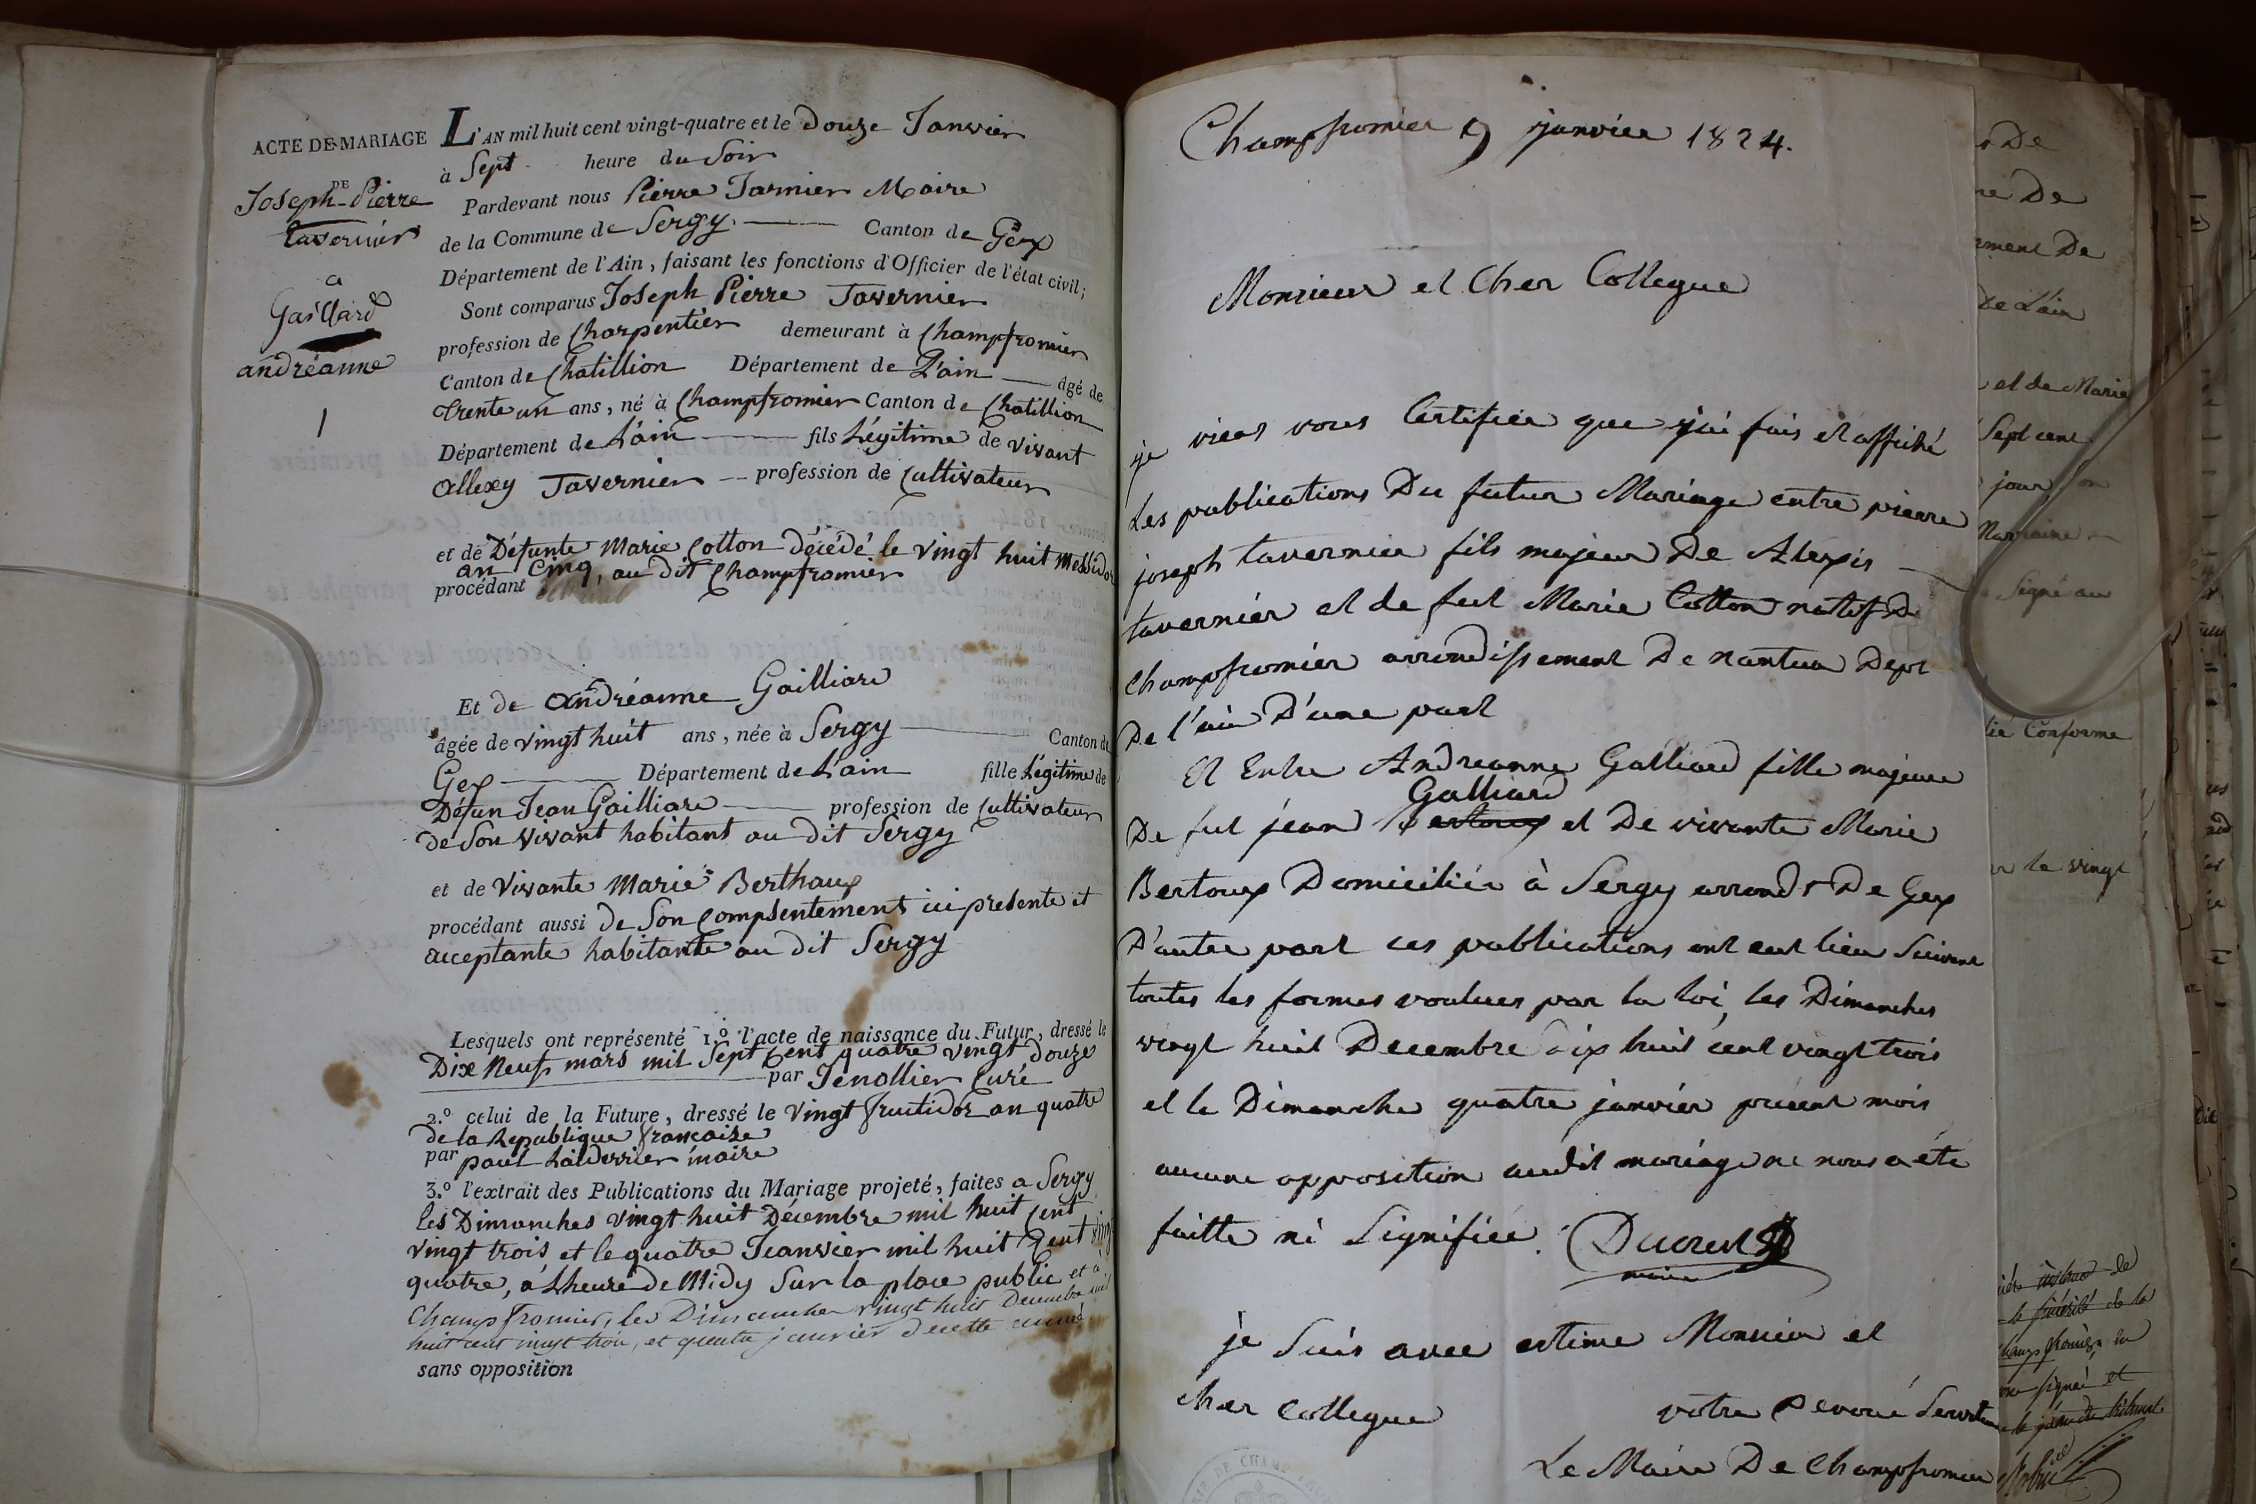 ACTE DE MARIAGE
DE
Joseph-Pierre
tavernier
a
Gaillard
andréanne
1
L'AN mil huit cent vingt-quatre et le douze Janvier
à Sept heure du Soir
Pardevant nous Pierre Jarnier Maire
de la Commune de Sergy Canton de Gex
Département de l'Ain, faisant les fonctions d'Officier de l'état civil;
Sont comparus Joseph Pierre Tavernier
profession de Charpentier demeurant à Champfromier
Canton de Chatillion Département de L'ain âgé de
trente un ans, né à Champfromier Canton de Chatillion
Département de L'ain fils Légitime de vivant
allexy Tavernier profession de Cultivateur
et de Défunte Marie Cotton décédé le vingt huit Messidor
an Cinq, au dit Champfromier
procédant
Et de andréanne Gailliard
âgée de vingt huit ans, née à Sergy Canton de
Gex Département de L'ain fille Légitime de
Défun Jean Gailliard profession de Cultivateur
de Son vivant habitant au dit Sergy
et de vivante Marie Berthoux
procédant aussi de Son Compsentement ici presente et
acceptante habitante au dit Sergy
Lesquels ont représenté 1.º l'acte de naissance du Futur, dressé le
Dix Neuf mars mil Sept Cent quatre vingt douze
par Jenollier Curé
2.º celui de la Future, dressé le vingt fructidor an quatre
de la Republique francaise
par paul Laiderrier maire
3.º l'extrait des Publications du Mariage projeté, faites a Sergy
les Dimanches vingt huit Décembre mil huit Cent
vingt trois et le quatre Jeanvier mil huit Cent vingt
quatre, a L'heure de Midy Sur la place public et à
Champfromier, les Dimanches vingt huit Decembre mil
huit cent vingt trois, et quatre janvier de cette année
sans opposition
Champfromier 9 janvier 1824.
Monsieur et Cher Collegue
je viens vous Certifier que j'ai fais et affiché
Les publications Du futur Mariage entre pierre
joseph tavernier fils majeur De Alexis
tavernier et de fut Marie Cotton natif De
Champfromier arrondissement De nantua Dept
De l'ain D'une part
Et Entre Andreanne Galliard fille majeure
Galliard
De fut jean Bertoux et De vivante Marie
Bertoux Domiciliée à Sergy arrondt De Gex
D'autre part ces publications ont eut lieu Suivant
toutes les formes voulues par la loi, les Dimanches
vingt huit Decembre dix huit cent vingt trois
et le Dimanche quatre janvier présent mois
aucune opposition audit mariage ne nous a été
faitte ni Signifiée. Ducret
maire
je Suis avec estime Monsieur et
cher Collegue
votre Devoué Serviteur
Le Maire De Champfromier
De
né De
ment De
De L'ain
et de Marie
Sept cent
jour
Marraine
Signé au
Conforme
le vingt
de
de la
signé et